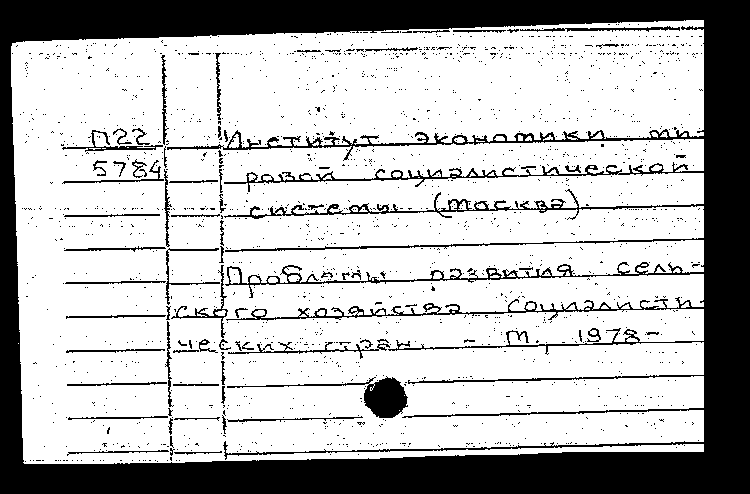 П22 Институт экономики ми-
5784 ровой социалистической
системы (Москва).
Проблемы развития сель-
ского хозяйства социалисти-
ческих стран. - М., 1978-